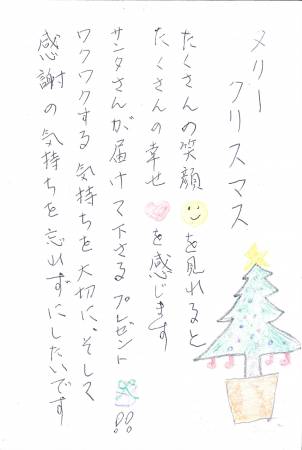 メリー
クリスマス
たくさんの笑顔を見れると
たくさんの幸せを感じます
サンタさんが届けて下さるプレゼント!!
ワクワクする気持ちを大切に、そして
感謝の気持ちを忘れずにしたいです